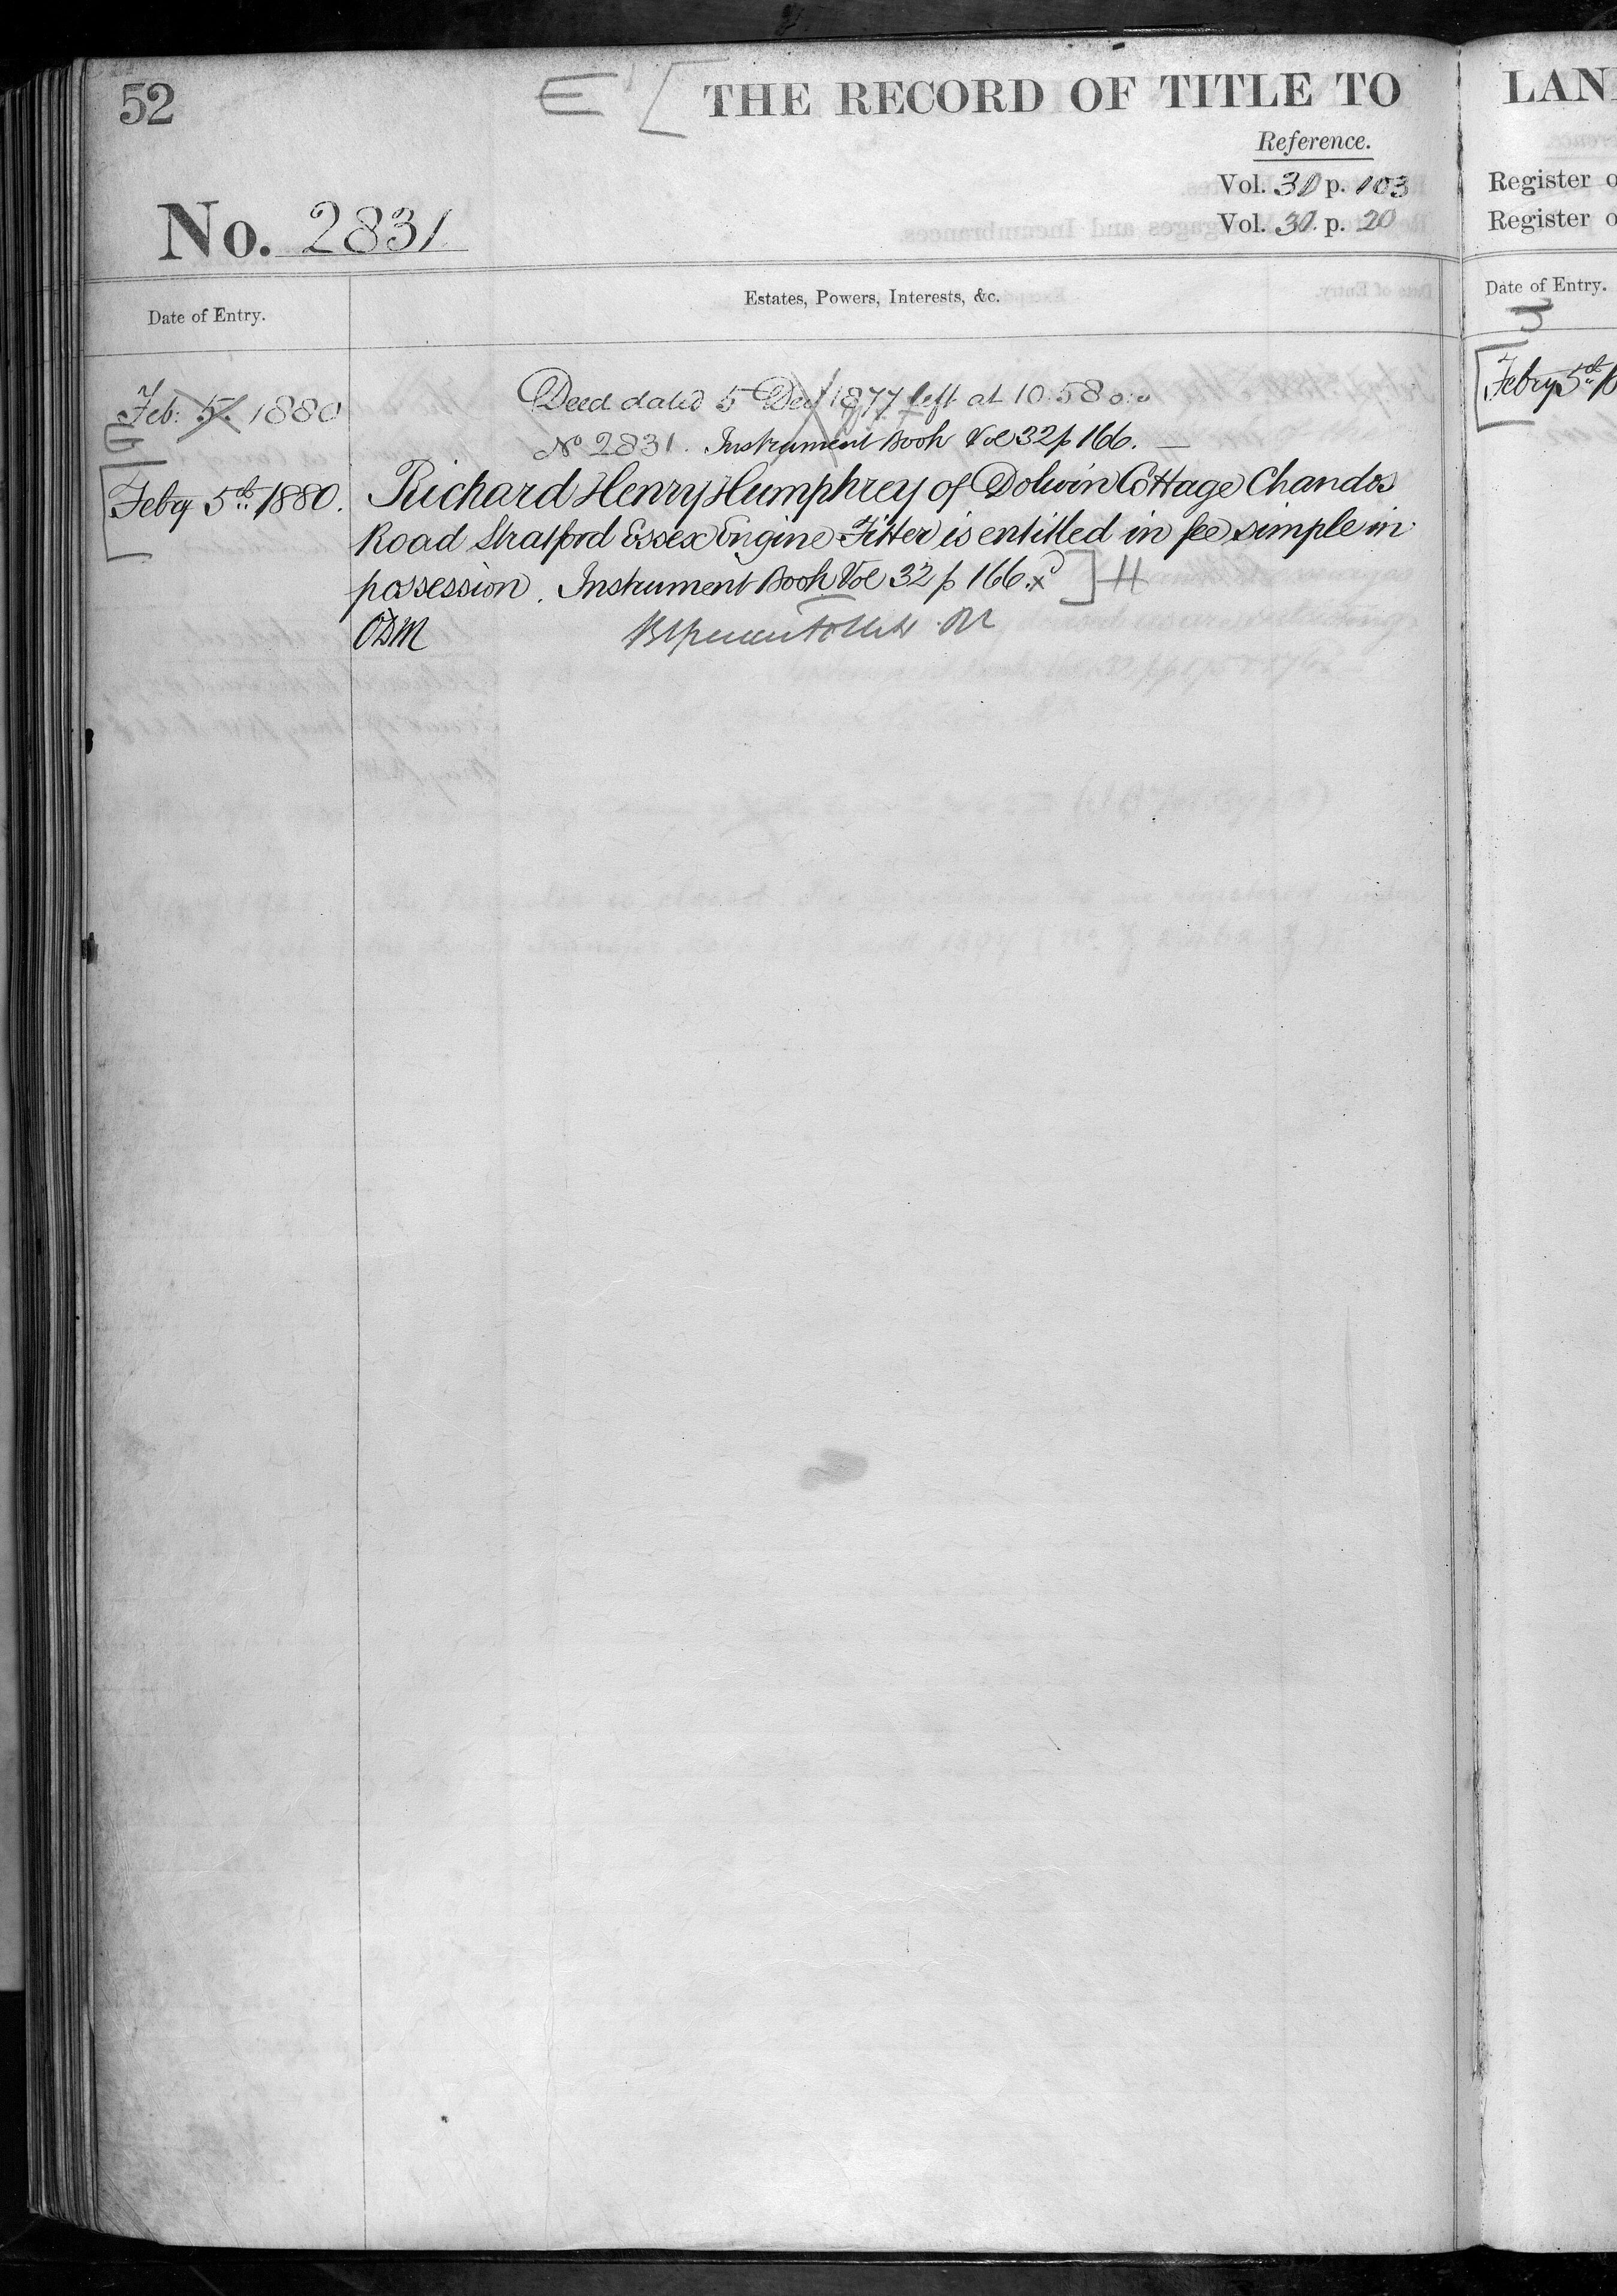 52
E [ THE RECORD OF TITLE TO
Reference.
Vol. 30 p. 103
Vol. 30. p. 20
No. 2831
Date of Entry.
Estates, Powers, Interests, &c.
Feb: 5. 1880
Deed dated 5 Decr 1877 left at 10.58
No 2831. Instrument Book Vol 32 p 166. —
G
[Feby 5th 1880.
Richard Henry Humphrey of Dolwin Cottage Chandos
Road Stratford Essex Engine Fitter is entitled in fee simple in
possession. Instrument Book Vol 32 p 166. x ] H
LAN
Register o
Register o
Date of Entry.
[Febry 5th 18